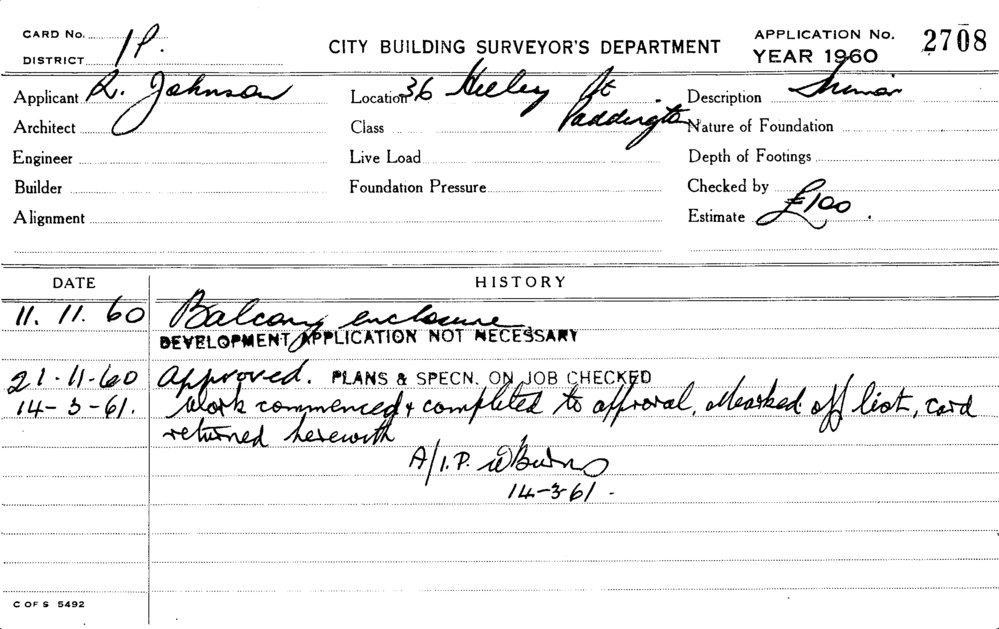 CARD No.
DISTRICT 1P.
CITY BUILDING SURVEYOR'S DEPARTMENT
APPLICATION No. 2708
YEAR 1960
Applicant R. Johnson
Location 36 Heeley St Paddington
Description Minor
Architect
Class
Nature of Foundation
Engineer
Live Load
Depth of Footings
Builder
Foundation Pressure
Checked by
Alignment
Estimate £100.
DATE HISTORY
11. 11. 60 Balcony enclosure
DEVELOPMENT APPLICATION NOT NECESSARY
21-11-60 Approved. PLANS & SPECN. ON JOB CHECKED
14-3-61. Work commenced & completed to approval, Marked off list, card
returned herewith
A/I.P. W Burns
14-3-61.
C OF S 5492